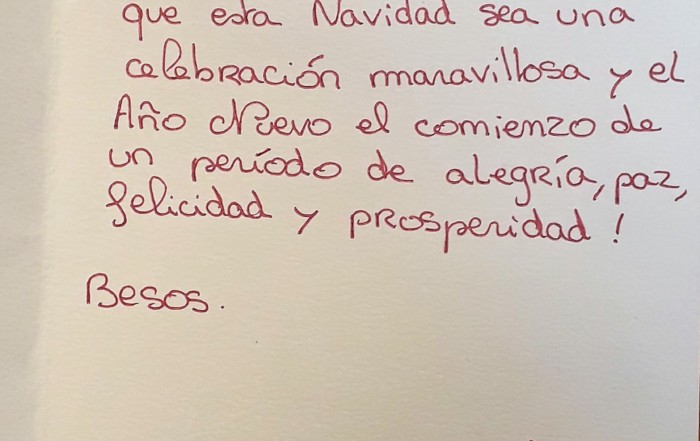 que esta Navidad sea una
celebración maravillosa y el
Año Nuevo el comienzo de
un período de alegría, paz,
felicidad y prosperidad!
Besos.